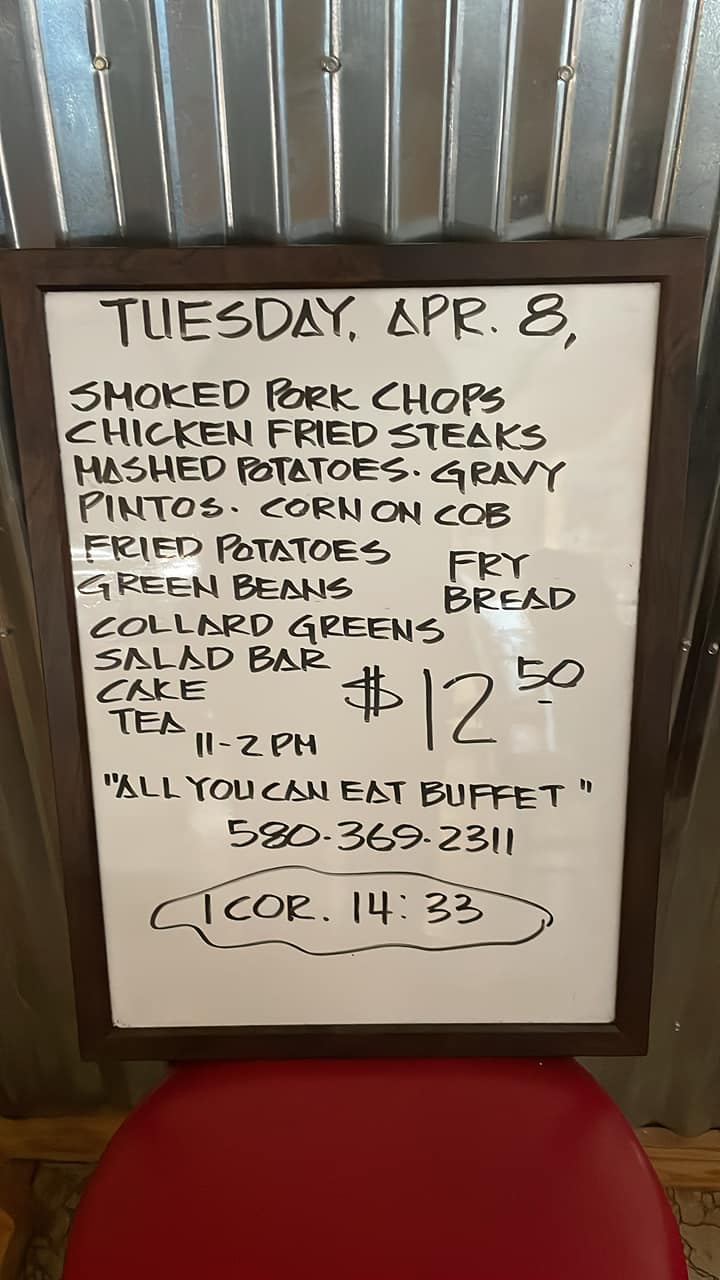 TUESDAY, APR. 8,
SMOKED PORK CHOPS
CHICKEN FRIED STEAKS
MASHED POTATOES. GRAVY
PINTOS. CORN ON COB
FRIED POTATOES
GREEN BEANS
FRY
BREAD
COLLARD GREENS
SALAD BAR
CAKE
TEA
$12 50
11-2 PM
"ALL YOU CAN EAT BUFFET"
580-369-2311
1 COR. 14:33